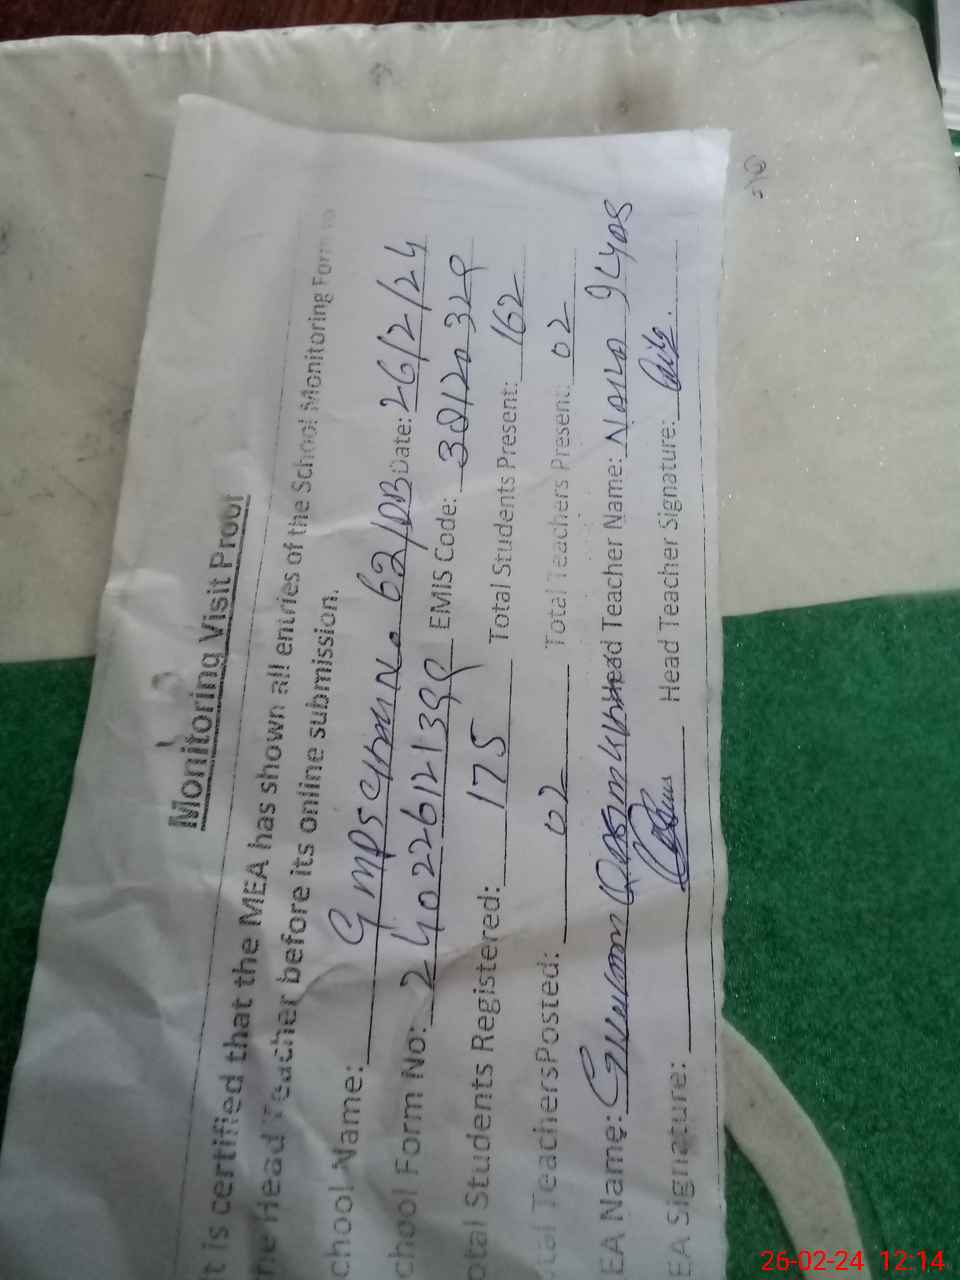 Monitoring Visit Proof
t is certified that the MEA has shown all entries of the School Monitoring Form to
he Head Teacher before its online submission.
chool Name: GMPS Chak No 63/DB Date: 26/2/24
chool Form No: 24022612139 EMIS Code: 38120329
otal Students Registered: 175 Total Students Present: 162
tal TeachersPosted: 02 Total Teachers Present: 02
EA Name: Head Teacher Name:
EA Signature: Head Teacher Signature:
26-02-24 12:14